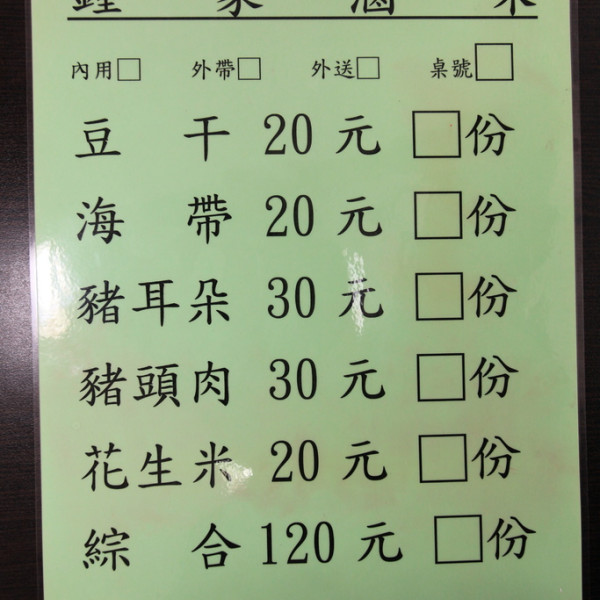 家滷味
內用□ 外帶□ 外送□ 桌號□
豆干 20 元 □份
海帶 20 元 □份
豬耳朵 30 元 □份
豬頭肉 30 元 □份
花生米 20 元 □份
綜合 120 元 □份